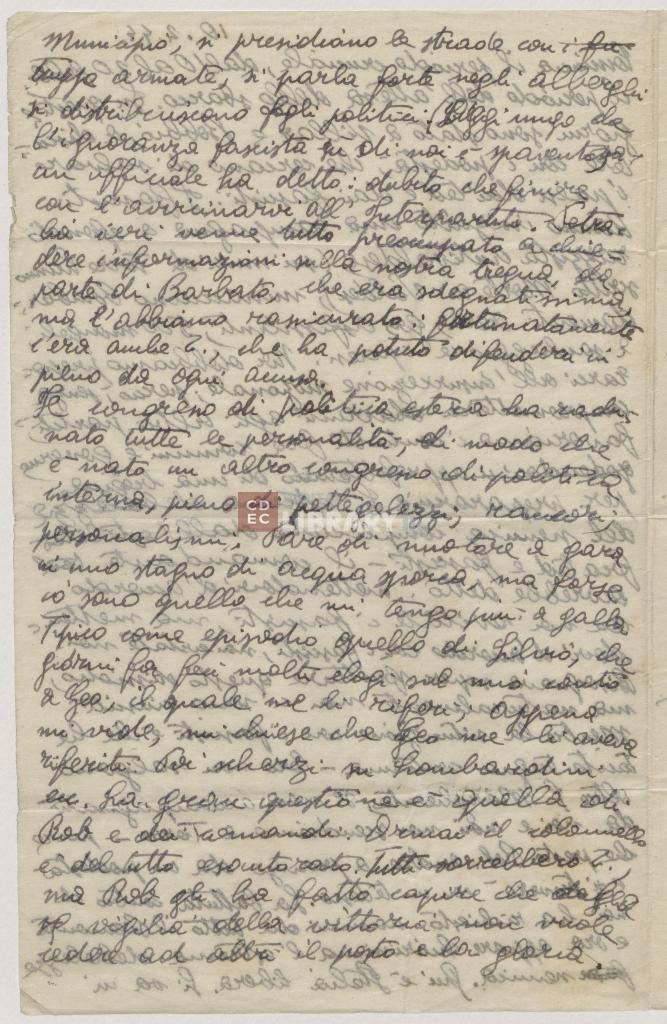 Municipio, si presidiano le strade con i fu-
truppe armate, si parla forte negli alberghi
si distribuiscono fogli politici. (Aggiungo che
l'ignoranza fascista su di noi è spaventosa:
un ufficiale ha detto: dubito che finirà
con l'avvicinarvi all'Interpartito. Setra.
ha ieri venne tutto preoccupato a chie-
dere informazioni sulla nostra tregua, da
parte di Barbato, che era sdegnatissimo,
ma l'abbiamo rassicurato: fortunatamente
c'era anche T., che ha potuto difenderci in
pieno da ogni accusa.
Il congresso di politica estera ha radu-
nato tutte le personalità, di modo che
è nato un altro congresso di politica
interna, pieno di pettegolezzi, rancori,
personalismi; Pare di nuotare a gara
in uno stagno di acqua sporca, ma forse
io sono quello che mi tengo più a galla
Tipico come episodio quello di Silvio, che
giorni fa fece molti elogi sul mio conto
a Geo, il quale me li riferì; appena
mi vide, mi chiese che Geo me li aveva
riferiti. Poi scherzi su Lombardini
ecc. La gran questione è quella di
Rob e dei comandi. Ormai il colonnello
è del tutto esautorato. Tutti vorrebbero T.,
ma Rob gli ha fatto capire che alla
vigilia della vittoria non vuole
cedere ad altri il posto e la gloria.
CDEC
LIBRARY